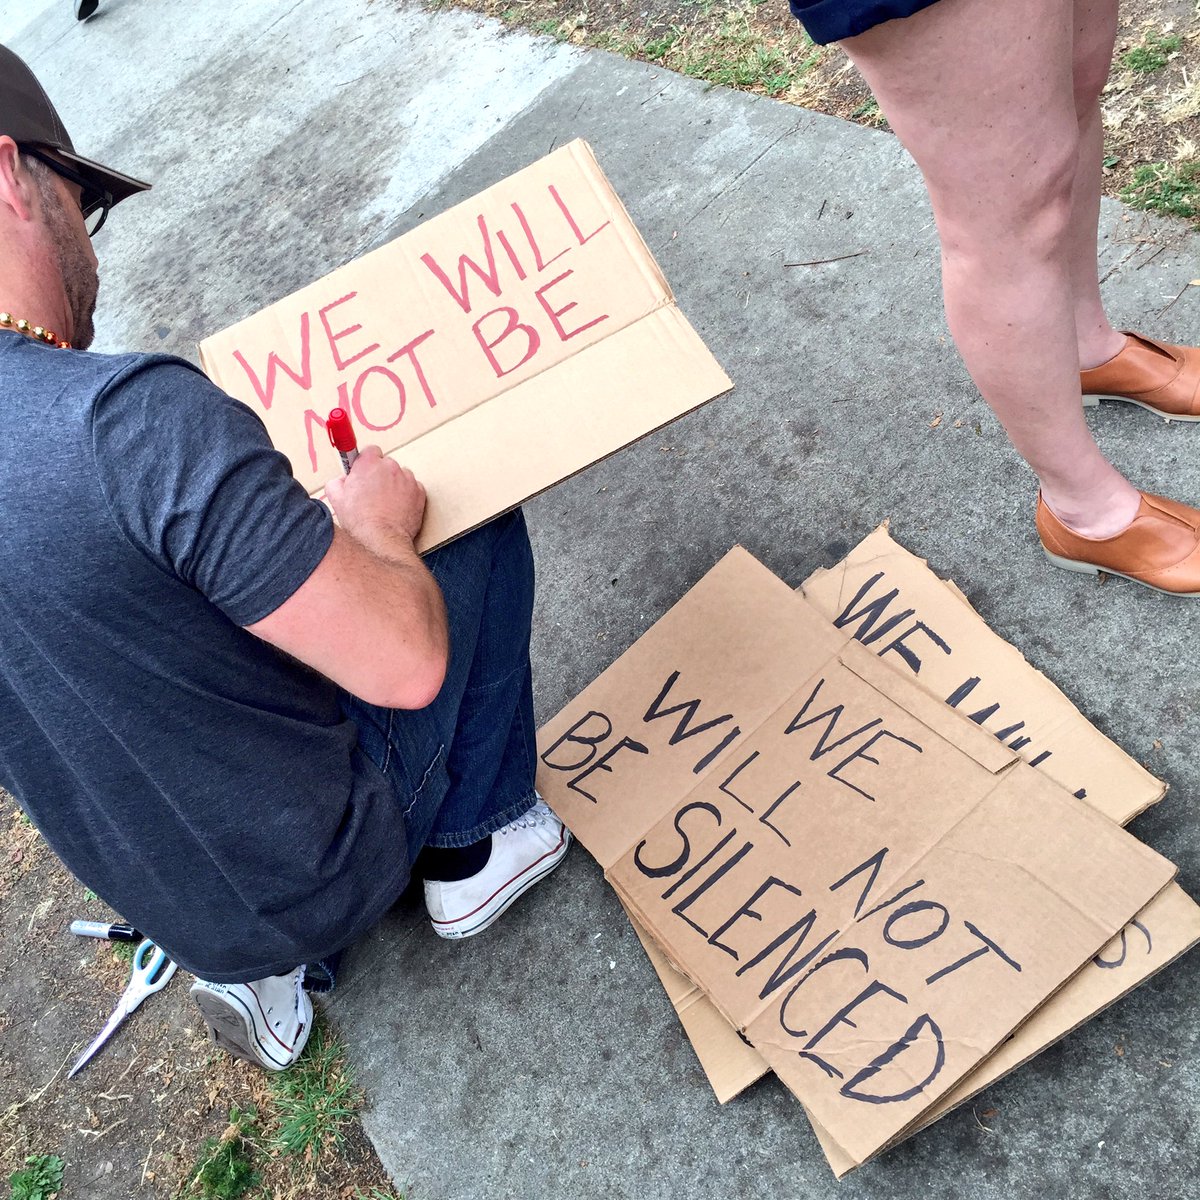 WE WILL
NOT BE
WE
WILL NOT
BE SILENCED
WE WILL